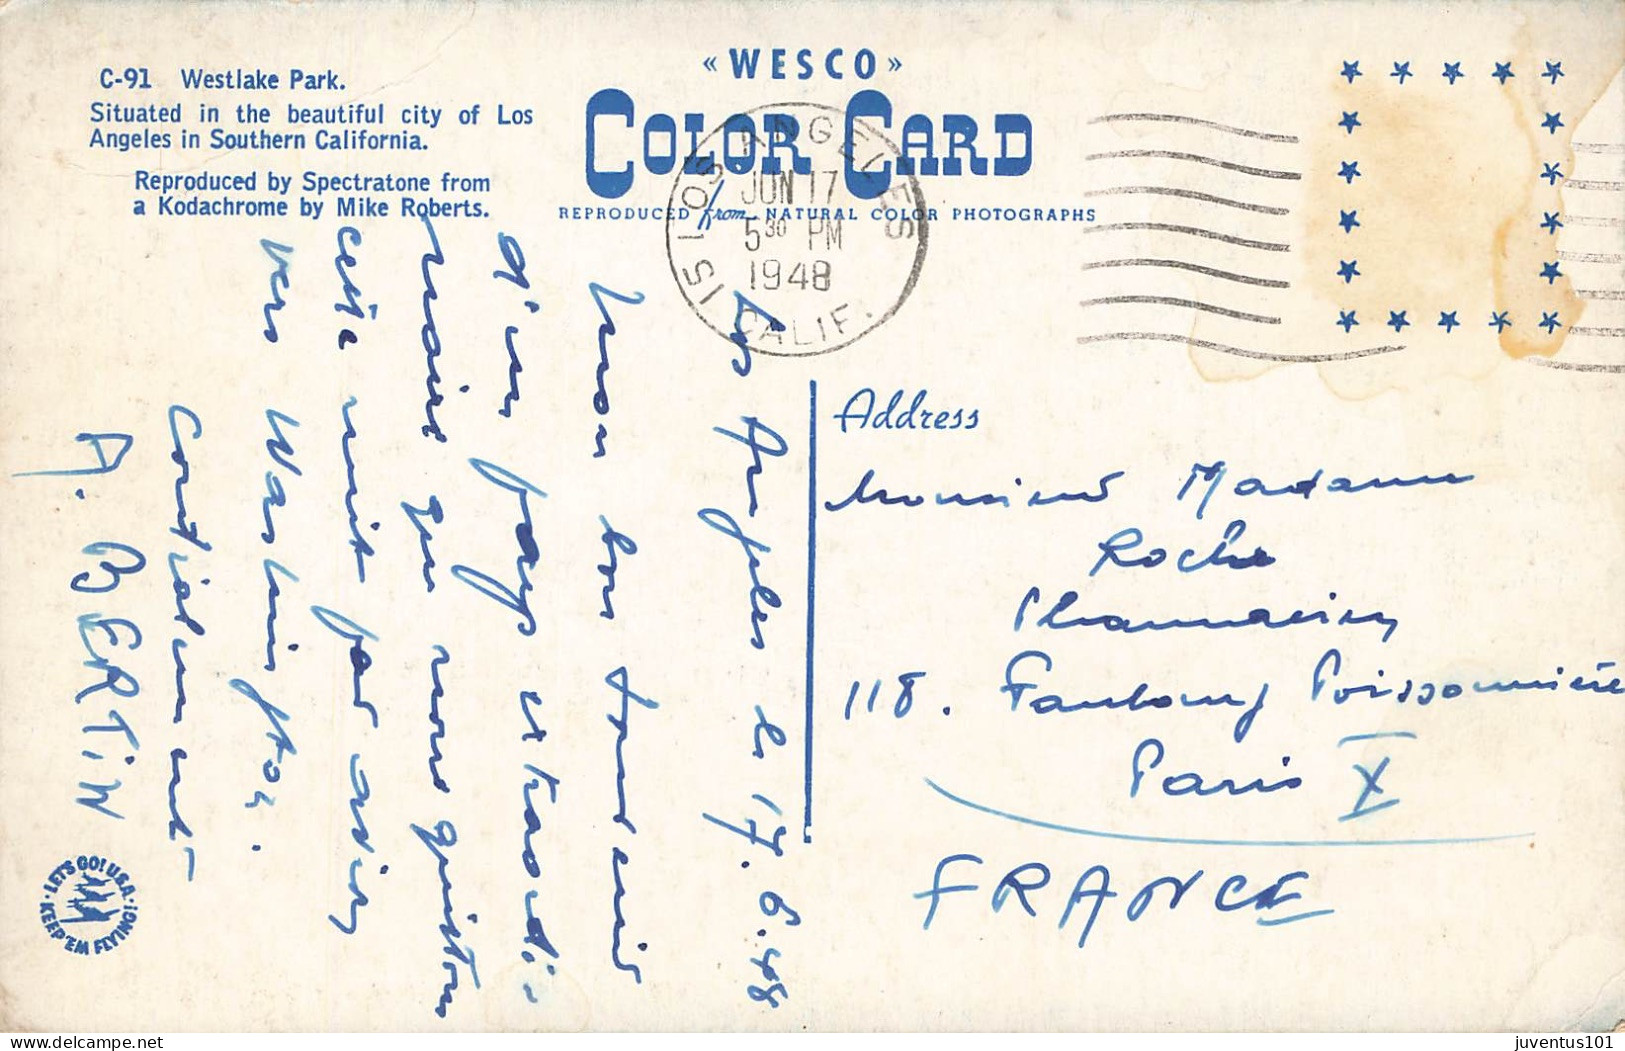 C-91 Westlake Park.
Situated in the beautiful city of Los
Angeles in Southern California.
Reproduced by Spectratone from
a Kodachrome by Mike Roberts.
«WESCO»
COLOR CARD
REPRODUCED from NATURAL COLOR PHOTOGRAPHS
LOS ANGELES 15
JUN 17
5 30 PM
1948
CALIF.
Los Angeles le 17.6.48
Mon bon souvenir
d'un pays extraordi-
naire que nous quittons
cette nuit par avion
vers Washington.
Cordialement
A. BERTIN
Address
Monsieur Madame
Roche
Pharmacien
118. Faubourg Poissonnière
Paris X
FRANCE
LET'S GO! U.S.A.
KEEP 'EM FLYING!
juventus101